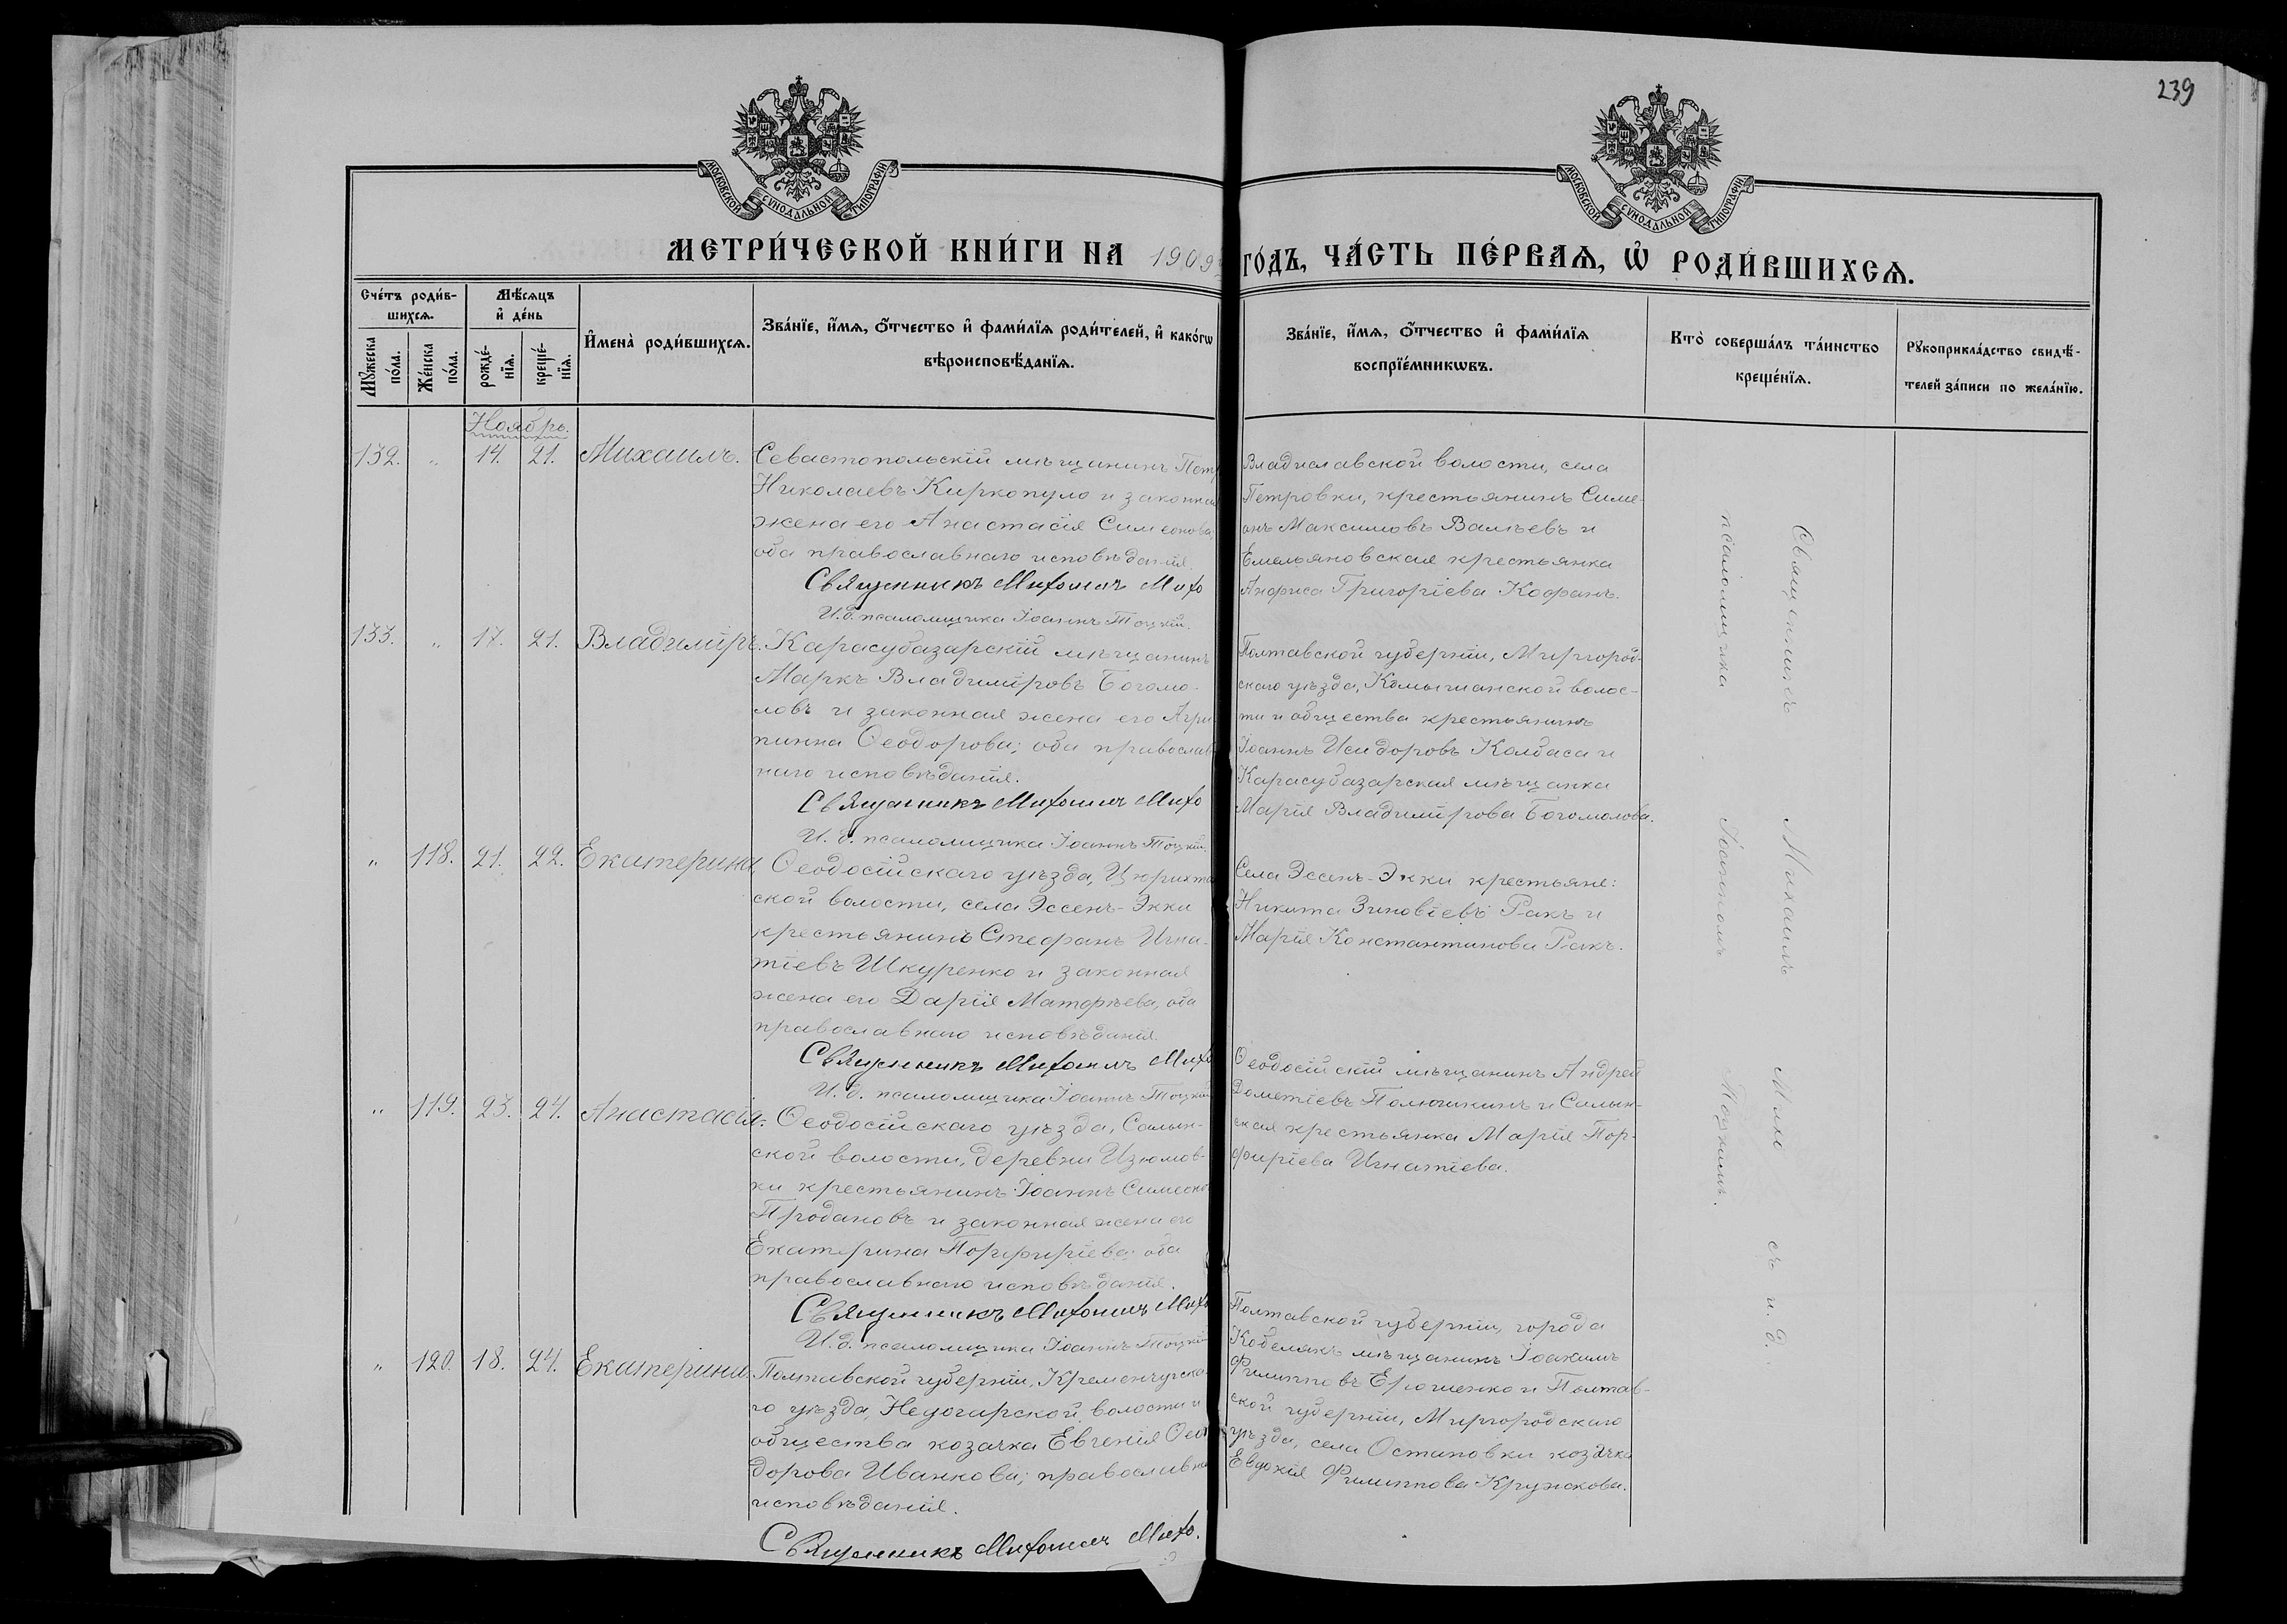 239
МОСКОВСКОЙ СѴНОДАЛЬНОЙ ТИПОГРАФІИ
МОСКОВСКОЙ СѴНОДАЛЬНОЙ ТИПОГРАФІИ
МЕТРИ́ЧЕСКОЙ КНИ́ГИ НА 1909 ГО́ДЪ, ЧА́СТЬ ПЕ́РВАѦ, Ѡ҆ РОДИ́ВШИХСѦ.
Сче́тъ роди́в-
шихсѧ.
Мꙋ́жеска по́ла.
Же́нска по́ла.
Мѣ́сѧцъ
и҆ де́нь
рожде́-
нїѧ.
креще́-
нїѧ.
И҆мена̀ роди́вшихсѧ.
Зва́нїе, и҆́мѧ, ѻ҆́тчество и҆ фами́лїѧ роди́телей, и҆ како́гѡ
вѣроисповѣ́данїѧ.
Зва́нїе, и҆́мѧ, ѻ҆́тчество и҆ фами́лїѧ
воспрїе́мникѡвъ.
Кто̀ соверша́лъ та́инство
креще́нїѧ.
Рꙋкоприкла́дство свидѣ́-
телей за́писи по жела́нїю.
Ноябрь.
132. " 14. 21. Михаилъ.
Севастопольскій мѣщанинъ Петр
Николаевъ Киркопуло и законная
жена его Анастасія Симеонова,
оба православнаго исповѣданія.
Священникъ Михаилъ Михо
И.д. псаломщика Іоаннъ Тоцкій.
Владиславской волости, села
Петровки, крестьянинъ Симе-
онъ Максимовъ Вальевъ и
Емельяновская крестьянка
Анфиса Григоріева Кофанъ.
133. " 17. 21. Владиміръ.
Карасубазарскій мѣщанинъ
Маркъ Владиміровъ Богомо-
ловъ и законная жена его Агри
пинна Ѳеодорова; оба православ
наго исповѣданія.
Священникъ Михаилъ Михо
И. д. псаломщика Іоаннъ Тоцкій.
Полтавской губерніи, Миргород-
скаго уѣзда, Комышанской волос-
ти и общества крестьянинъ
Іоаннъ Исидоровъ Колбаса и
Карасубазарская мѣщанка
Марія Владимірова Богомолова.
" 118. 21. 22. Екатерина.
Ѳеодосійскаго уѣзда, Цюрихта
ской волости, села Эссенъ-Экки
крестьянинъ Стефанъ Игна-
тіевъ Шкуренко и законная
жена его Дарія Матфѣева, оба
православнаго исповѣданія.
Священникъ Михаилъ Михо
И. д. псаломщика Іоаннъ Тоцкій
Села Эссенъ-Экки крестьяне:
Никита Зиновіевъ Ракъ и
Марія Константинова Ракъ.
" 119. 23. 24. Анастасія.
Ѳеодосійскаго уѣзда, Салын-
ской волости, деревни Изюмов-
ки крестьянинъ Іоаннъ Симеоно
Продановъ и законная жена его
Екатерина Порфиріева; оба
православнаго исповѣданія.
Священникъ Михаилъ Михо
И. д. псаломщика Іоаннъ Тоцкій
Ѳеодосійскій мѣщанинъ Андрей
Дометіевъ Полюшкинъ и Салын-
ская крестьянка Марія Пор-
фиріева Игнатіева.
" 120. 18. 24. Екатерина.
Полтавской губерніи, Кременчугска-
го уѣзда, Недогарской волости и
общества козачка Евгенія Ѳео
дорова Иванкова; православна
исповѣданія.
Священникъ Михаилъ Михо.
Полтавской губерніи, города
Кобелякъ мѣщанинъ Іоакимъ
Филипповъ Ерошенко и Полтав-
ской губерніи, Миргородскаго
уѣзда, села Остаповки козачка
Евдокія Филиппова Кружкова.
Священникъ Михаилъ Михо съ и. д.
псаломщика Іоанномъ Тоцкимъ.